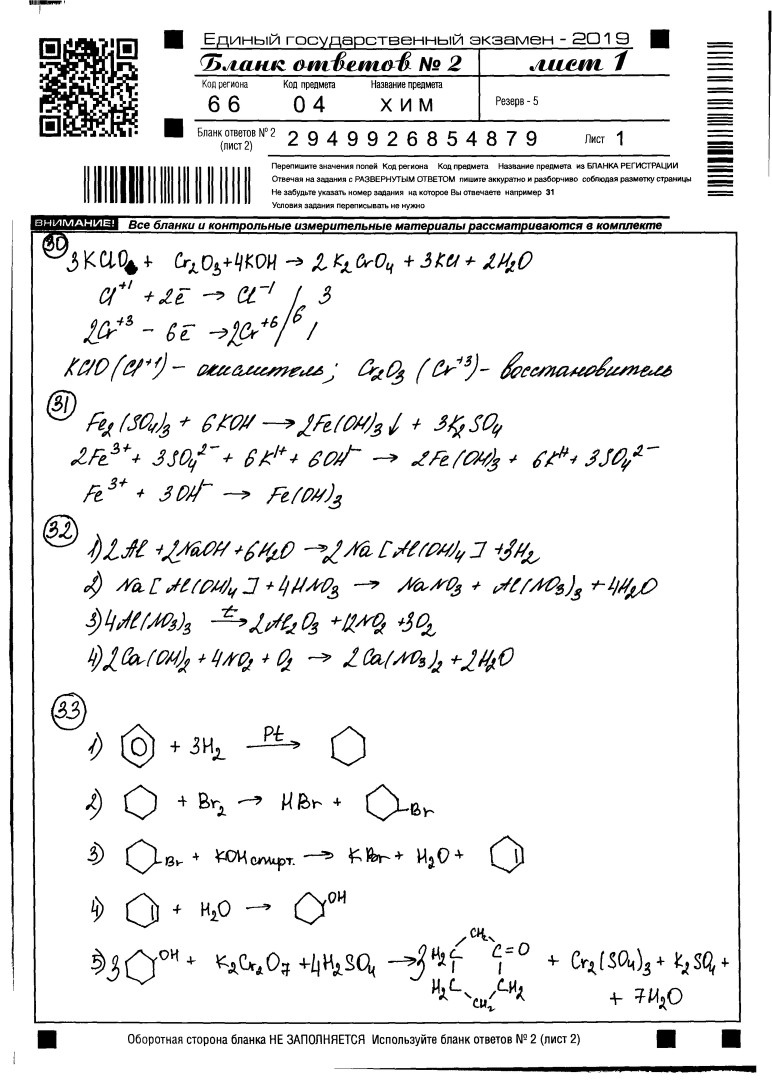 Единый государственный экзамен - 2019
Бланк ответов № 2 лист 1
Код региона Код предмета Название предмета
66 04 ХИМ Резерв - 5
Бланк ответов № 2 (лист 2) 2949926854879 Лист 1
Перепишите значения полей Код региона Код предмета Название предмета из БЛАНКА РЕГИСТРАЦИИ
Отвечая на задания с РАЗВЕРНУТЫМ ОТВЕТОМ пишите аккуратно и разборчиво соблюдая разметку страницы
Не забудьте указать номер задания на которое Вы отвечаете например 31
Условия задания переписывать не нужно
ВНИМАНИЕ! Все бланки и контрольные измерительные материалы рассматриваются в комплекте
30
3KClO + Cr₂O₃ + 4KOH → 2K₂CrO₄ + 3KCl + 2H₂O
Cl⁺¹ + 2ē → Cl⁻¹ / 6 / 3
2Cr⁺³ - 6ē → 2Cr⁺⁶ / 1
KClO (Cl⁺¹) - окислитель; Cr₂O₃ (Cr⁺³) - восстановитель
31
Fe₂(SO₄)₃ + 6KOH → 2Fe(OH)₃↓ + 3K₂SO₄
2Fe³⁺ + 3SO₄²⁻ + 6K¹⁺ + 6OH⁻ → 2Fe(OH)₃ + 6K¹⁺ + 3SO₄²⁻
Fe³⁺ + 3OH⁻ → Fe(OH)₃
32
1) 2Al + 2NaOH + 6H₂O → 2Na[Al(OH)₄] + 3H₂
2) Na[Al(OH)₄] + 4HNO₃ → NaNO₃ + Al(NO₃)₃ + 4H₂O
3) 4Al(NO₃)₃ t→ 2Al₂O₃ + 12NO₂ + 3O₂
4) 2Ca(OH)₂ + 4NO₂ + O₂ → 2Ca(NO₃)₂ + 2H₂O
33
1) + 3H₂ Pt→
2) + Br₂ → HBr + Br
3) Br + KOH спирт. → KBr + H₂O +
4) + H₂O → OH
5) 3 OH + K₂Cr₂O₇ + 4H₂SO₄ → 3 H₂C CH₂ C=O H₂C CH₂ CH₂ + Cr₂(SO₄)₃ + K₂SO₄ +
+ 7H₂O
Оборотная сторона бланка НЕ ЗАПОЛНЯЕТСЯ Используйте бланк ответов № 2 (лист 2)